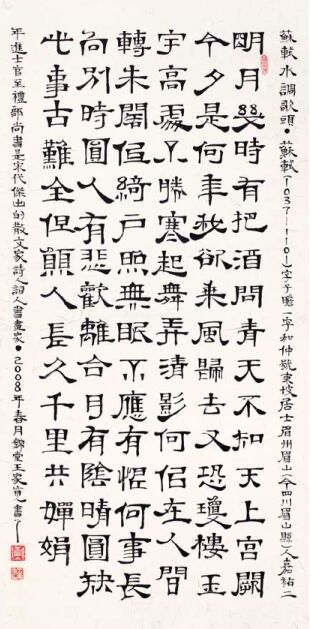 蘇軾水調歌頭•蘇軾(1037—1101)字子瞻一字和仲號東坡居士眉州眉山(今四川眉山縣)人嘉祐二
明月幾時有把酒問青天不知天上宮闕
今夕是何年我欲乘風歸去又恐瓊樓玉
宇高處不勝寒起舞弄清影何佀在人間
轉朱閣低綺戶照無眠不應有恨何事長
向別時圓人有悲歡離合月有陰晴圓缺
此事古難全但願人長久千里共嬋娟
年進士官至禮部尚書是宋代傑出的散文家詩人詞人書畫家•2008年春月錦堂王家寬書